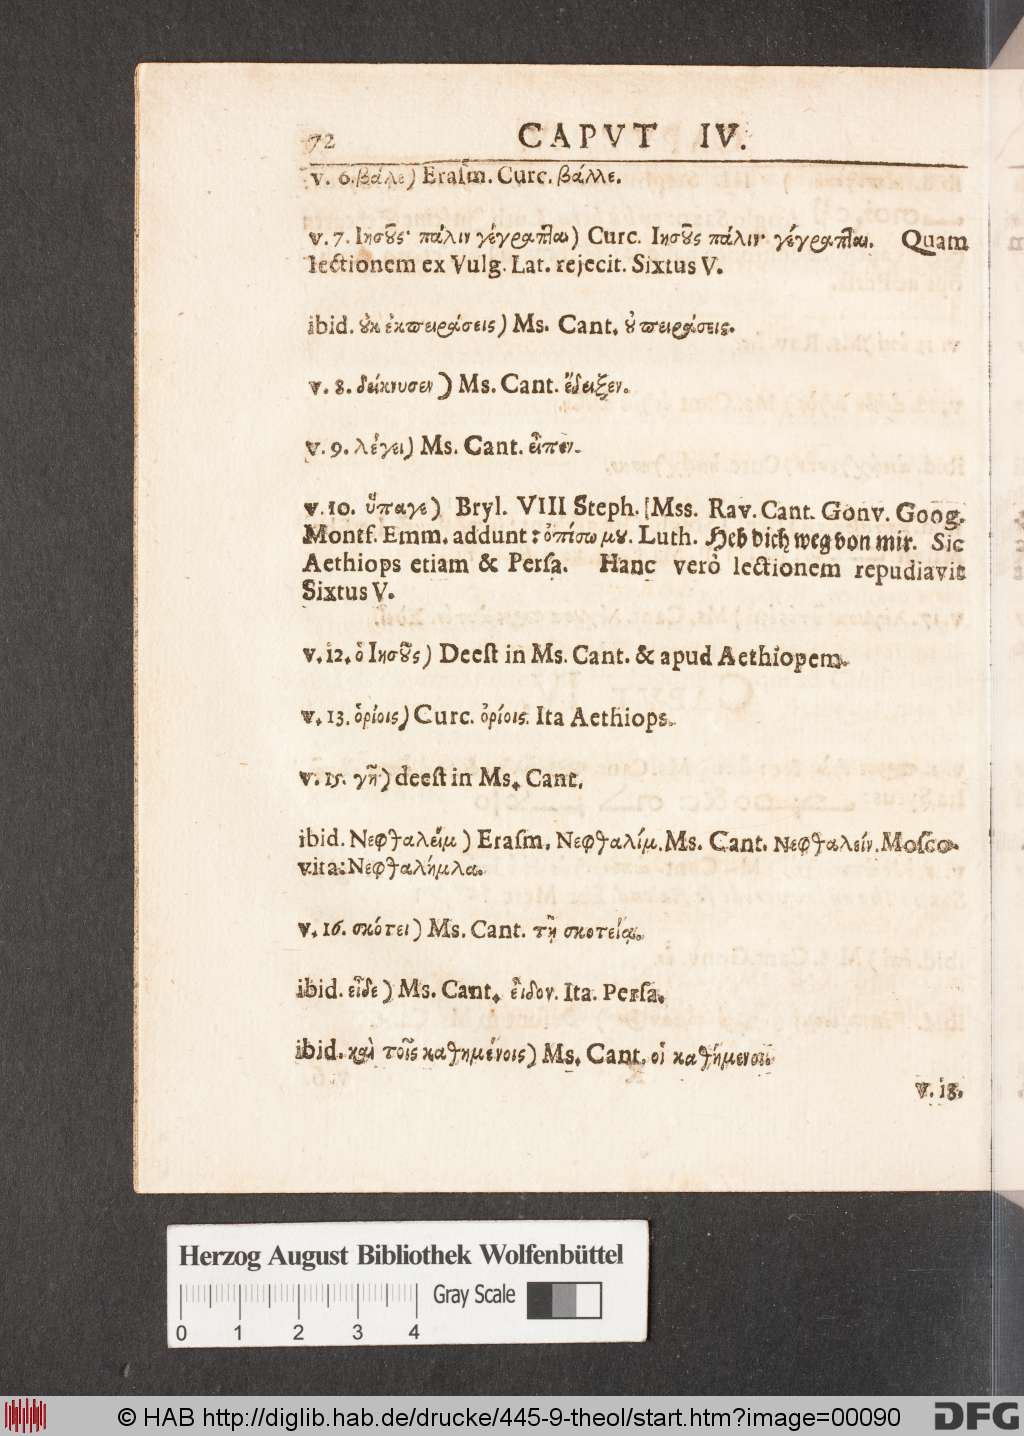 72 CAPVT IV.
v. 6. βάλε) Eraſm. Curc. βάλλε.
v. 7. Ιησȣ͂ς· πάλιν γέγραπται) Curc. Ιησȣ͂ς πάλιν· γέγραπται. Quam
lectionem ex Vulg. Lat. rejecit. Sixtus V.
ibid. ȣ̓κ ἐκπειράσεις) Ms. Cant. ȣ̓ πειράσεις.
v. 8. δείκνυσεν) Ms. Cant. ἔδειξεν.
v. 9. λέγει) Ms. Cant. εἶπεν.
v. 10. ὕπαγε) Bryl. VIII Steph. [Mss. Rav. Cant. Gonv. Goog.
Montf. Emm. addunt: ὀπίσω μȣ. Luth. Heb dich weg von mir. Sic
Aethiops etiam & Perſa. Hanc verò lectionem repudiavit
Sixtus V.
v. 12. ὁ Ιησȣ͂ς) Deeſt in Ms. Cant. & apud Aethiopem.
v. 13. ὁρίοις) Curc. ὀρίοις. Ita Aethiops.
v. 15. γῆ) deeſt in Ms. Cant.
ibid. Νεφθαλεὶμ) Eraſm. Νεφθαλίμ. Ms. Cant. Νεφθαλείν. Moſco-
vita: Νεφθαλήμλα.
v. 16. σκότει) Ms. Cant. τῇ σκοτείᾳ.
ibid. εἶδε) Ms. Cant. εἶδον. Ita. Perſa.
ibid. καὶ τοῖς καθημένοις) Ms. Cant. οἱ καθήμενοι.
v. 18.
Herzog August Bibliothek Wolfenbüttel
Gray Scale
0 1 2 3 4
© HAB http://diglib.hab.de/drucke/445-9-theol/start.htm?image=00090 DFG